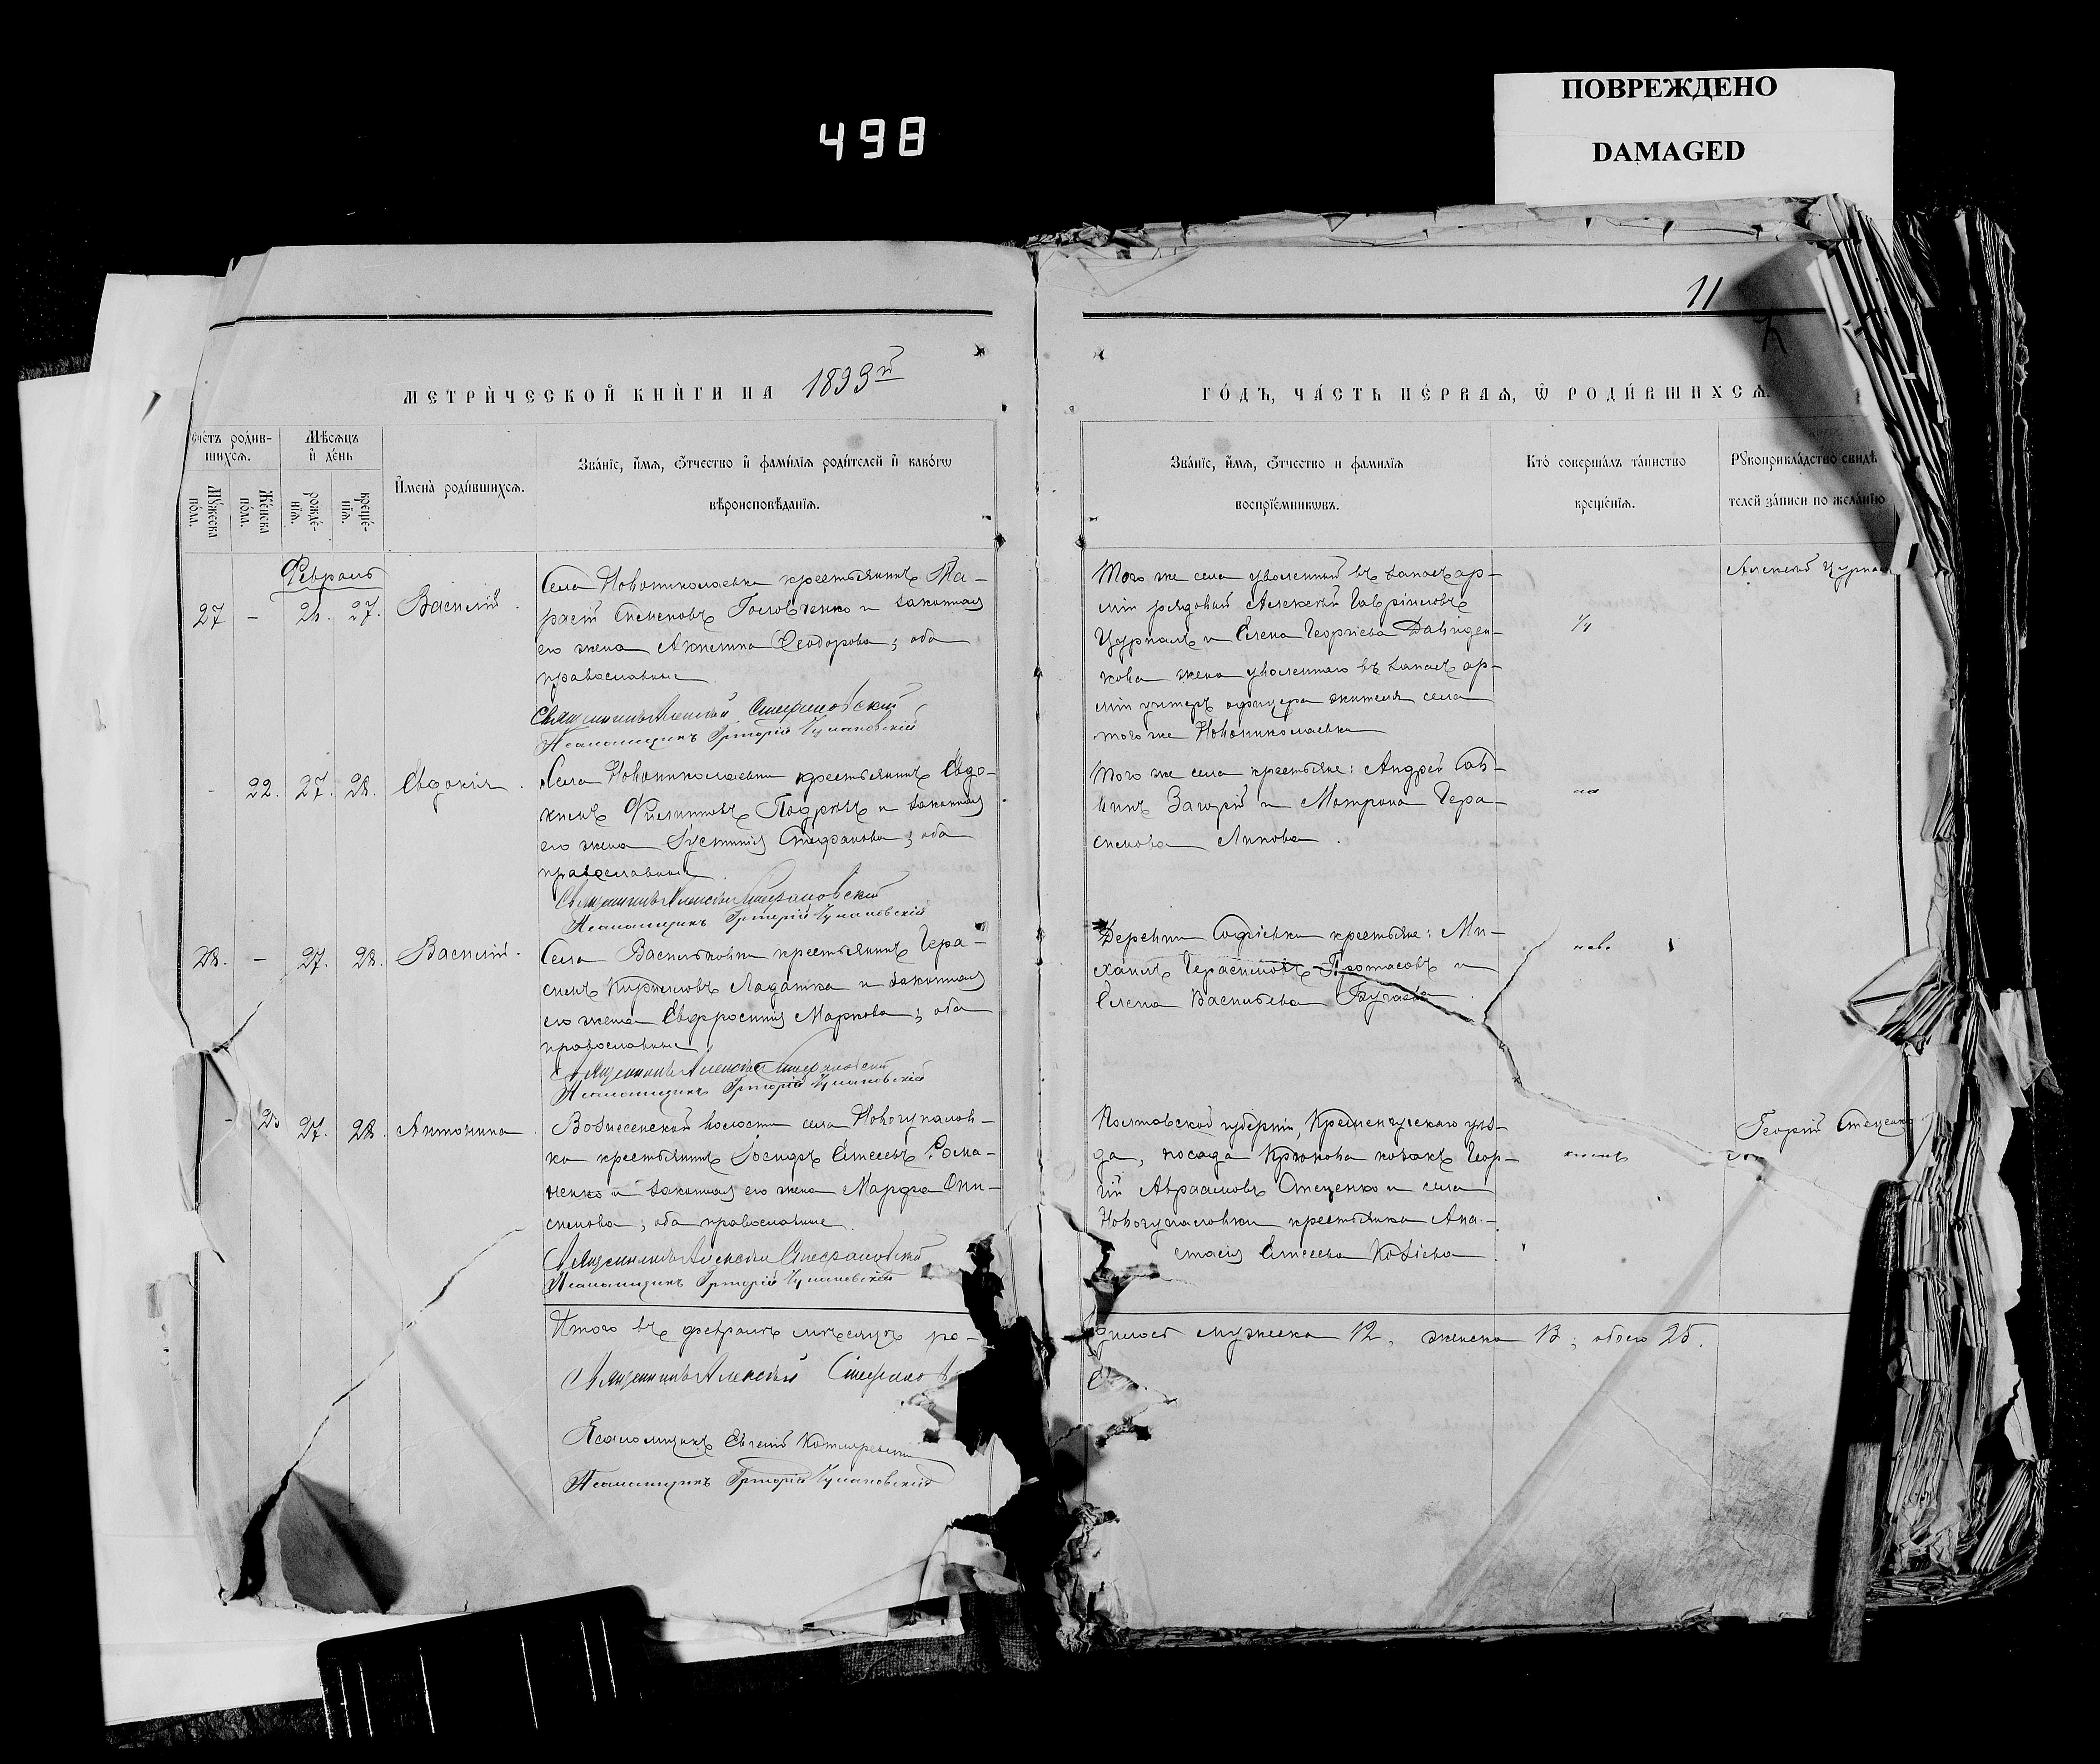 498
ПОВРЕЖДЕНО
DAMAGED
11
МЕТРИ́ЧЕСКОЙ КНИ́ГИ НА 1899й
ГО́ДЪ, ЧА́СТЬ ПЕ́РВАѦ, Ѡ РОДИ́ВШИХСѦ.
Сче́тъ роди́в-
шихсѧ.
Мѣ́сѧцъ
и҆ де́нь
Мꙋ́жеска
по́ла.
Же́нска
по́ла.
рожде́-
нїѧ.
креще́-
нїѧ.
И҆мена̀ роди́вшихсѧ.
Зва́нїе, и҆́мѧ, ѻ҆́тчество и҆ фами́лїѧ роди́телей и҆ како́гѡ
вѣроисповѣ́данїѧ.
Зва́нїе, и҆́мѧ, ѻ҆́тчество и фами́лїѧ
воспрїе́мникѡвъ.
Кто̀ соверша́лъ та́инство
креще́нїѧ.
Рꙋкоприкла́дство свидѣ́
телей за́писи по жела́нїю
Февраль
27 - 27. Василій.
Села Новониколаевки крестьянинъ Та-
расій Семеновъ Головченко и законная
его жена Акилина Ѳеодорова; оба
православные
Священникъ Алексѣй Стефановскій
Псаломщикъ Григорій Чумановскій
Того же села уволенный въ запасъ ар-
міи рядовый Алексѣй Гавріиловъ
Цурканъ и Елена Георгіева
кова жена уволеннаго въ запасъ ар-
міи унтеръ офицера жителя села
того же Новониколаевки
Алексѣй
- 22. 27. 28. Евдокія.
Села Новониколаевки крестьянинъ Евдо-
кимъ Филипповъ и законная
его жена Іустинія Стефанова; оба
православные.
Священникъ Алексѣй Стефановскій
Псаломщикъ Григорій Чумановскій
Того же села крестьяне: Андрей Сав-
винъ Загорій и Матрона Гера-
симова Липова.
28. - 27. 28. Василій.
Села Васильковки крестьянинъ Гера-
симъ Кирилловъ Ладатка и законная
его жена Евфросинія Маркова; оба
православные
Священникъ Алексѣй Стефановскій
Псаломщикъ Григорій Чумановскій
Деревни Софіевки крестьяне: Ми-
хаилъ Герасимовъ Протасовъ и
Елена Васильева
- 27. 28. Антонина
Вознесенской волости села Новогупалов-
ки крестьянинъ Іосифъ Елисеевъ Рома-
ненко и законная его жена Марфа Они-
симова; оба православные.
Священникъ Алексѣй Стефановскій
Псаломщикъ Григорій Чумановскій
Полтавской губерніи, Кременчугскаго уѣз-
да, посада Крюкова козакъ Геор-
гій Авраамовъ Стеценко и села
Новогупаловки крестьянка Ана-
стасія Елисеева Козіева
Георгій Стеценко
Итого въ февралѣ мѣсяцѣ ро-
дилось мужеска 12, женска 13; обоего 25.
Священникъ Алексѣй Стефанов
Псаломщикъ Евгеній Котляревскій
Псаломщикъ Григорій Чумановскій